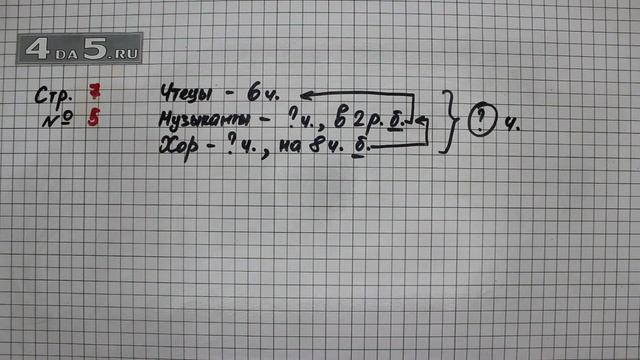 4DA5.RU
Стр. 7
№ 5
Чтецы - 6 ч.
Музыканты - ? ч., в 2 р. б.
Хор - ? ч., на 8 ч. б.
? ч.